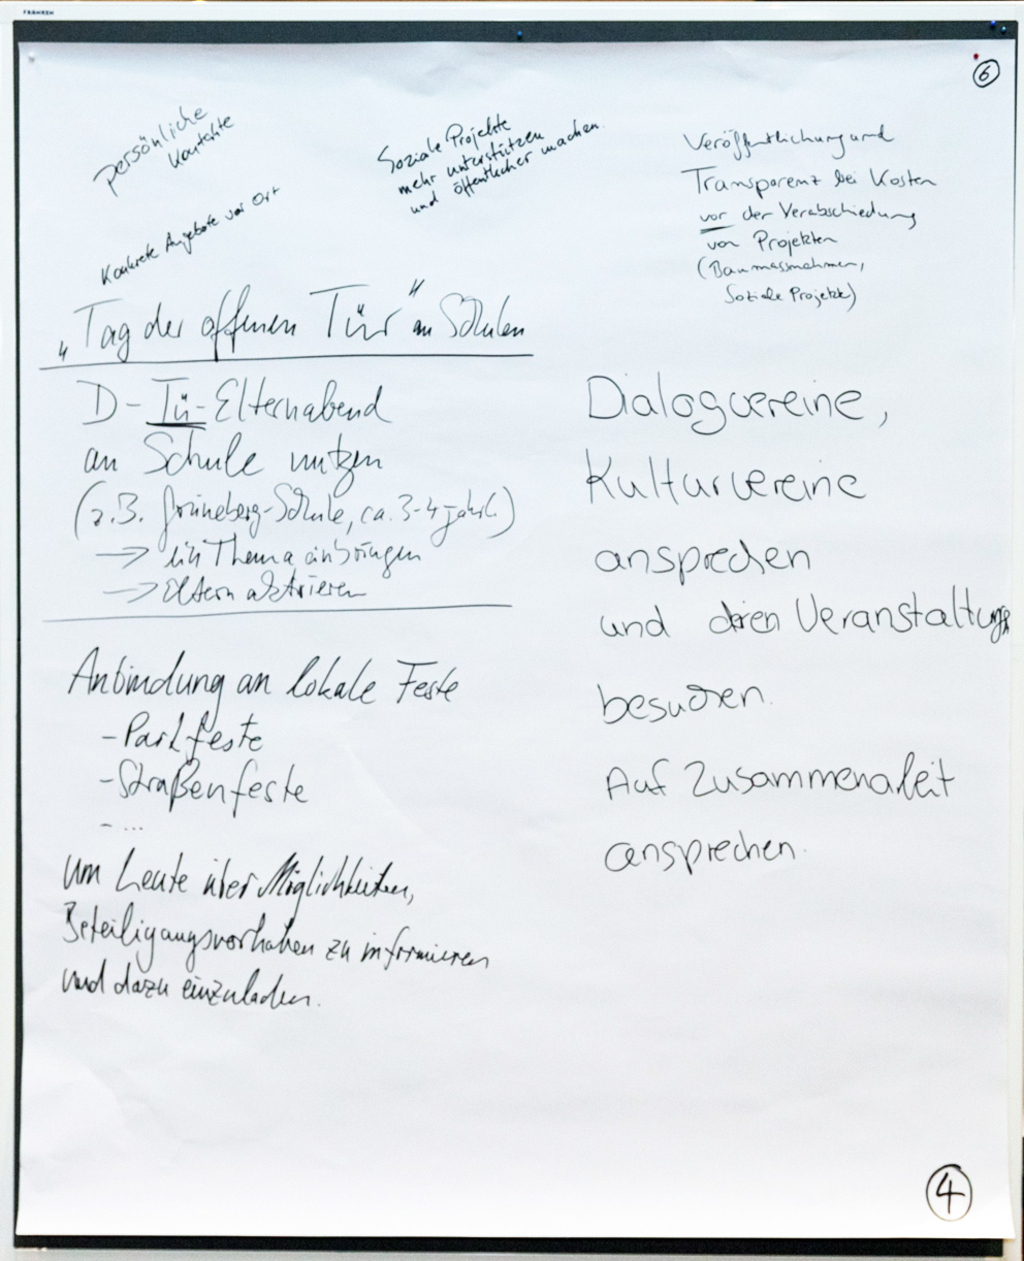 FRANKEN
6
persönliche
Kontakte
Konkrete Angebote vor Ort
Soziale Projekte
mehr unterstützen
und öffentlicher machen.
Veröffentlichung und
Transparenz bei Kosten
vor der Verabschiedung
von Projekten
(Baumassnahmen,
Soziale Projekte)
„Tag der offenen Tür" an Schulen
D-Tü-Elternabend
an Schule nutzen
(z.B. Grüneberg-Schule, ca. 3-4 jährl.)
→ ein Thema einbringen
→ Eltern aktivieren
Anbindung an lokale Feste
- Parkfeste
- Straßenfeste
- ...
um Leute über Möglichkeiten,
Beteiligungsvorhaben zu informieren
und dazu einzuladen.
Dialogvereine,
Kulturvereine
ansprechen
und deren Veranstaltungen
besuchen.
Auf Zusammenarbeit
ansprechen.
4